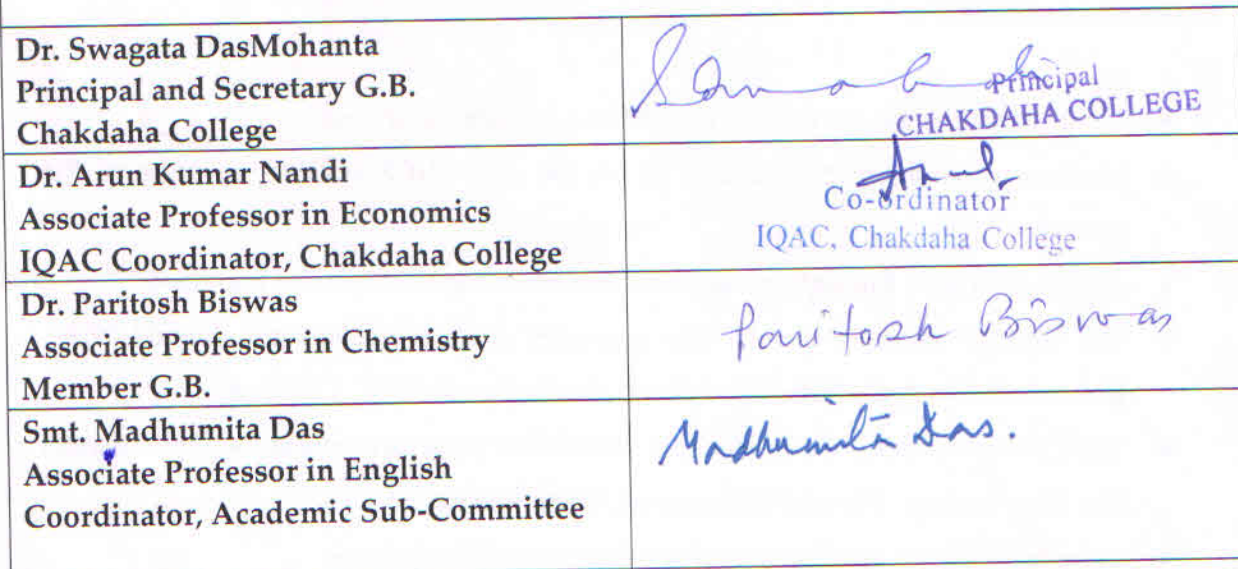 Dr. Swagata DasMohanta
Principal and Secretary G.B.
Chakdaha College
Principal
CHAKDAHA COLLEGE
Dr. Arun Kumar Nandi
Associate Professor in Economics
IQAC Coordinator, Chakdaha College
Co-ordinator
IQAC, Chakdaha College
Dr. Paritosh Biswas
Associate Professor in Chemistry
Member G.B.
Paritosh Biswas
Smt. Madhumita Das
Associate Professor in English
Coordinator, Academic Sub-Committee
Madhumita Das.